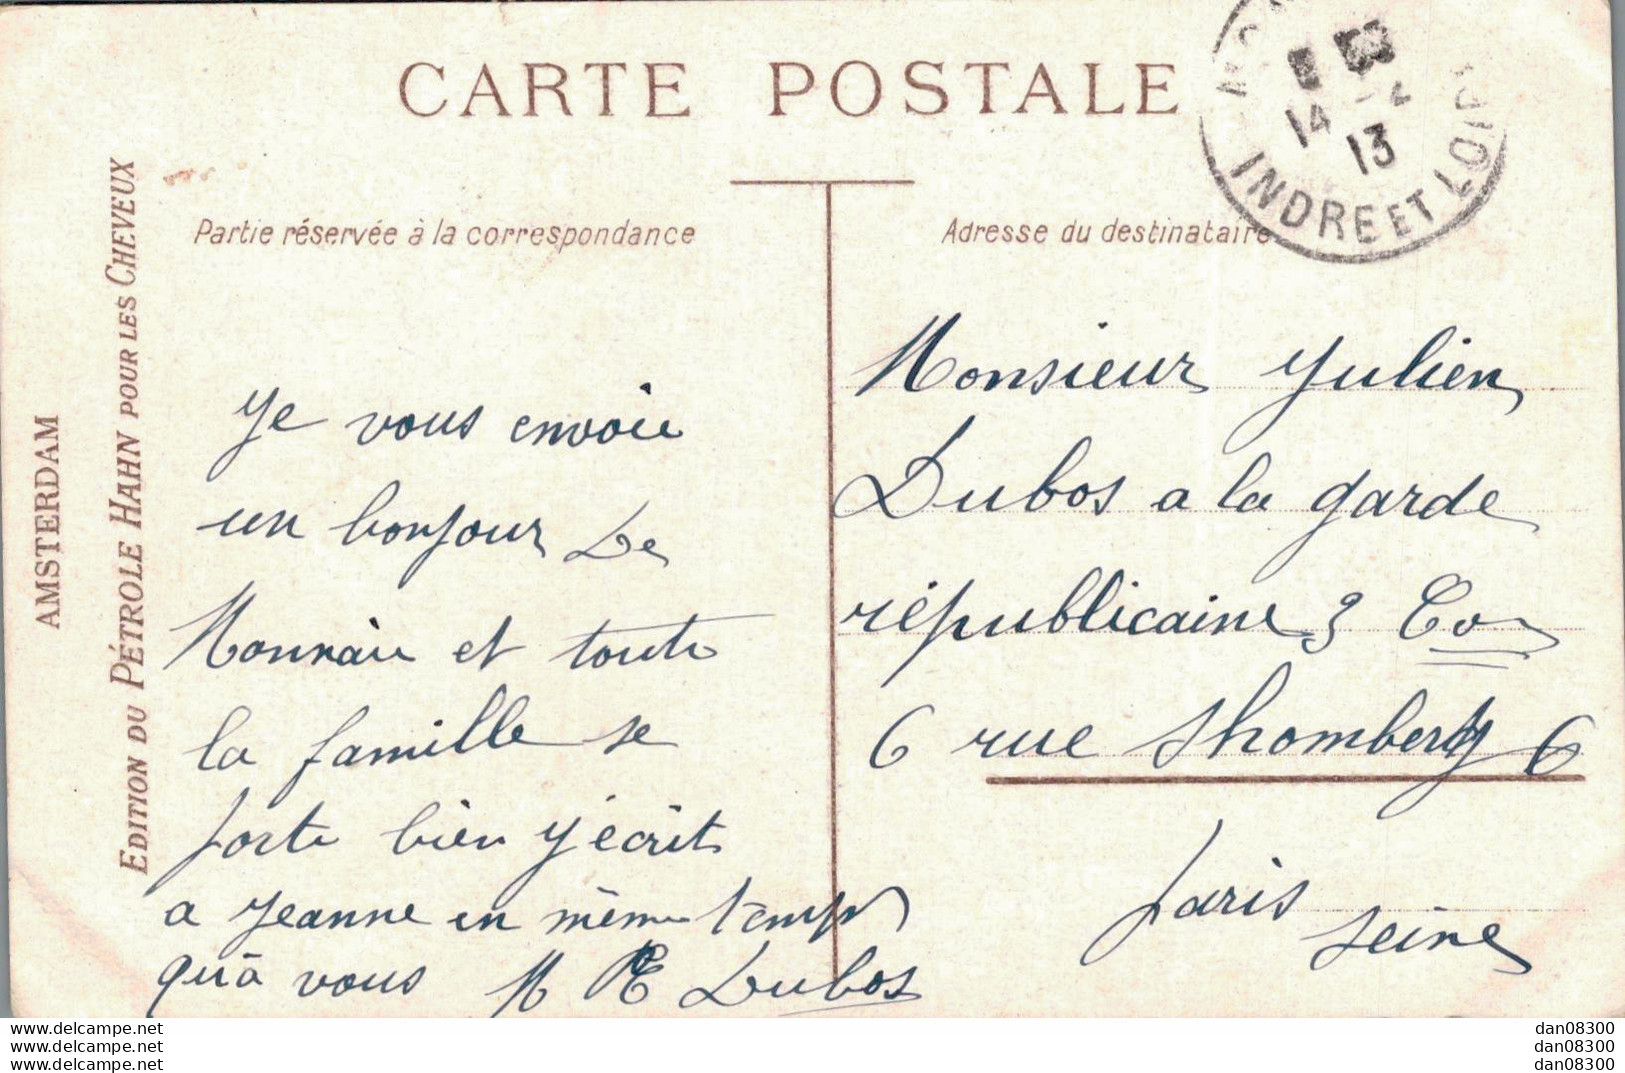 CARTE POSTALE
INDRE ET LOIRE
14
13
Partie réservée à la correspondance
Adresse du destinataire
AMSTERDAM
EDITION DU PÉTROLE HAHN POUR LES CHEVEUX
Je vous envoie
un bonjour De
Monnaie et toute
la famille se
porte bien J'écrit
a Jeanne en même temps
qu'à vous M E Dubos
Monsieur Julien
Dubos a la garde
républicaine 3 Co
6 rue Shomberg 6
Paris
Seine
www.delcampe.net
www.delcampe.net
www.delcampe.net
dan08300
dan08300
dan08300